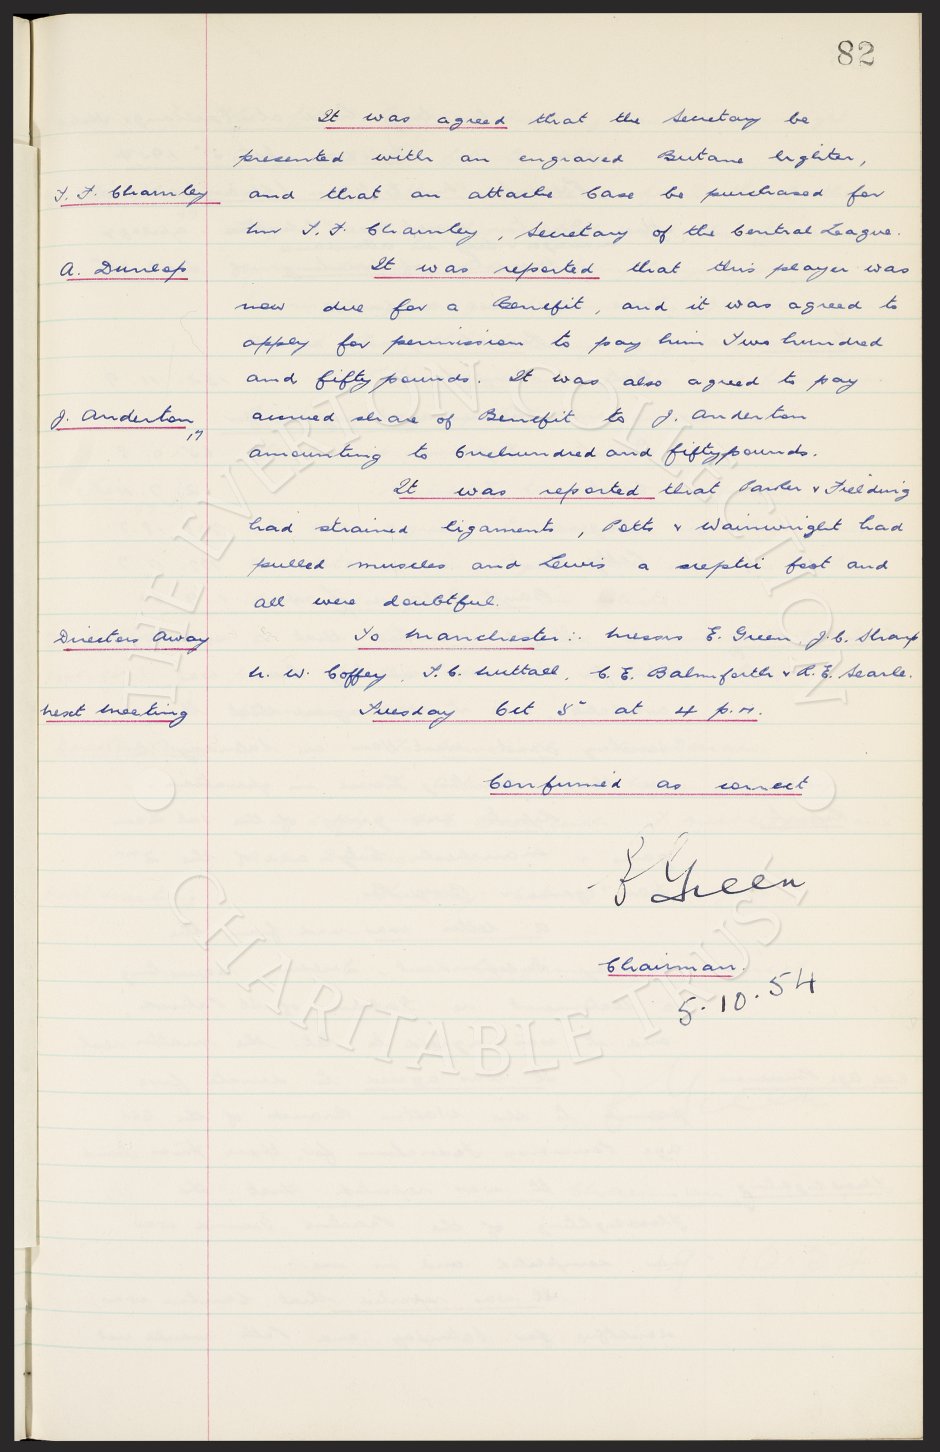 82
It was agreed that the Secretary be
presented with an engraved Butane lighter,
T. F. Charnley and that an attache Case be purchased for
Mr T. F. Charnley, Secretary of the Central League.
A. Dunlop It was reported that this player was
now due for a Benefit, and it was agreed to
apply for permission to pay him Two hundred
and fifty pounds. It was also agreed to pay
J. Anderton accrued share of Benefit to J. Anderton
amounting to Onehundred and fifty pounds.
It was reported that Parker & Fielding
had strained ligaments, Potts & Wainwright had
pulled muscles and Lewis a septic foot and
all were doubtful.
Directors Away To Manchester:- Messrs E. Green, J.C. Sharp
N. W. Coffey, T. C. Nuttall, C. E. Balmforth & R. E. Searle.
Next Meeting Tuesday Oct 5" at 4 p.m.
Confirmed as correct
E Green
Chairman.
5.10.54
THE EVERTON COLLECTION
CHARITABLE TRUST